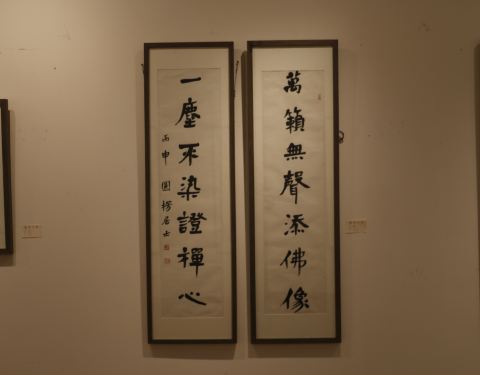 萬籟無聲添佛像
一塵不染證禪心
丙申 圓
居士